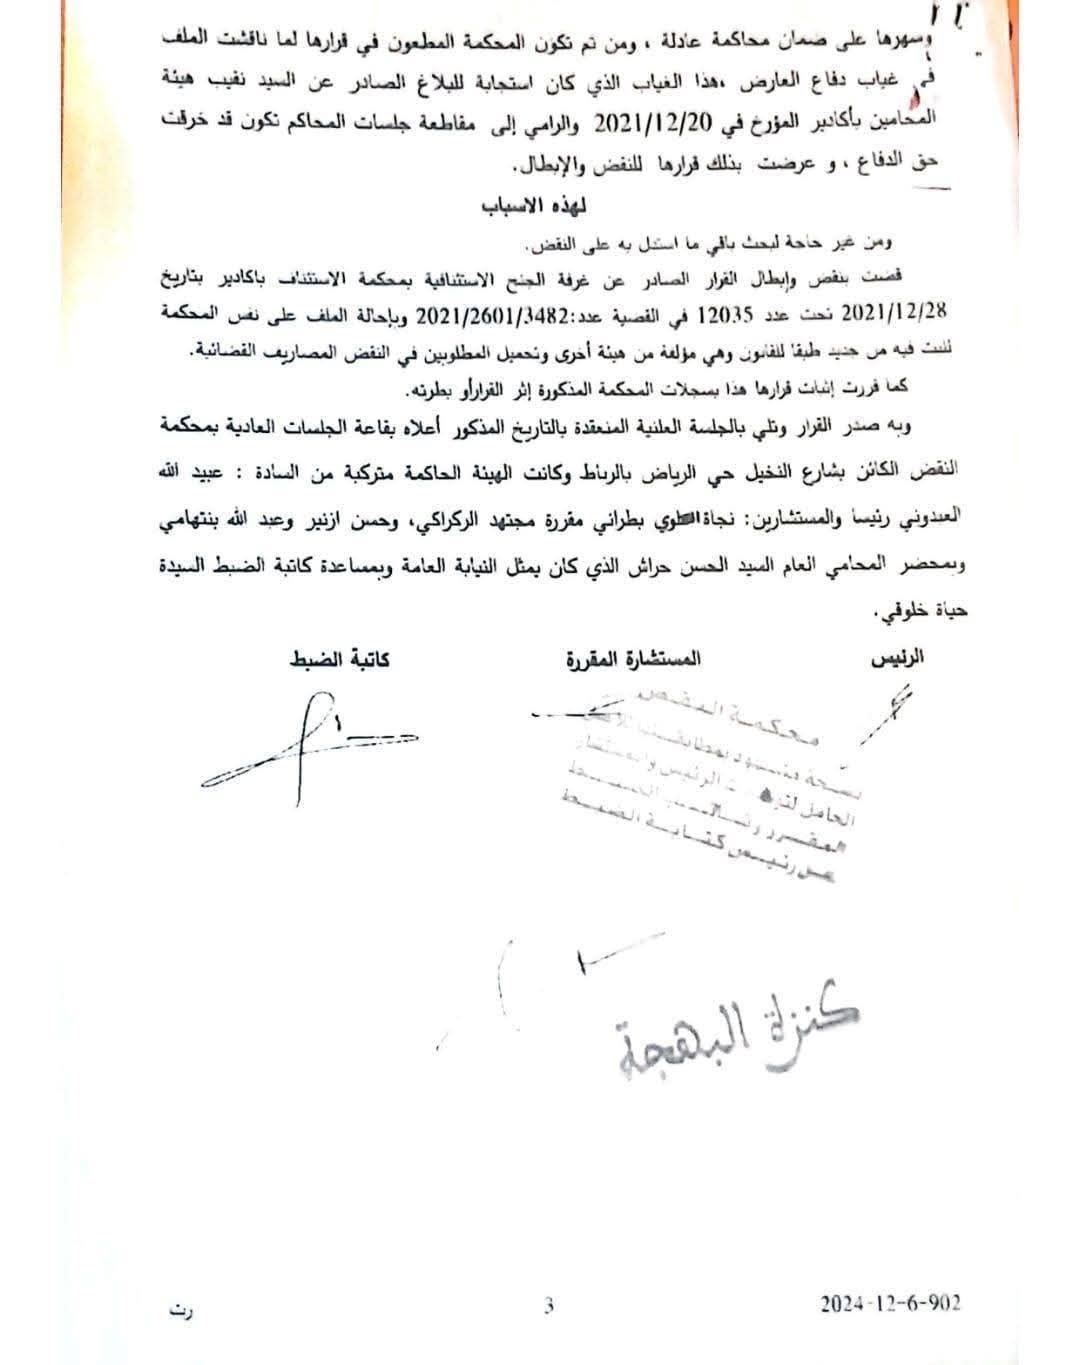 وسهرها على ضمان محاكمة عادلة ، ومن تم تكون المحكمة المطعون في قرارها لما ناقشت الملف
في غياب دفاع العارض ،هذا الغياب الذي كان استجابة للبلاغ الصادر عن السيد نقيب هيئة
المحامين بأكادير المؤرخ في 2021/12/20 والرامي إلى مقاطعة جلسات المحاكم تكون قد خرقت
حق الدفاع ، و عرضت بذلك قرارها للنقض والإبطال.
لهذه الاسباب
ومن غير حاجة لبحث باقي ما استدل به على النقض.
قضت بنقض وإبطال القرار الصادر عن غرفة الجنح الاستئنافية بمحكمة الاستئناف باكادير بتاريخ
2021/12/28 تحت عدد 12035 في القضية عدد:2021/2601/3482 وبإحالة الملف على نفس المحكمة
للبت فيه من جديد طبقا للقانون وهي مؤلفة من هيئة أخرى وتحميل المطلوبين في النقض المصاريف القضائية.
كما قررت إثبات قرارها هذا بسجلات المحكمة المذكورة إثر القرارأو بطرته.
وبه صدر القرار وتلي بالجلسة العلنية المنعقدة بالتاريخ المذكور أعلاه بقاعة الجلسات العادية بمحكمة
النقض الكائن بشارع النخيل حي الرياض بالرباط وكانت الهيئة الحاكمة متركبة من السادة : عبيد الله
العبدوني رئيسا والمستشارين: نجاة بطراني مقررة مجتهد الركراكي، وحسن ازنير وعبد الله بنتهامي
وبمحضر المحامي العام السيد الحسن حراش الذي كان يمثل النيابة العامة وبمساعدة كاتبة الضبط السيدة
حياة خلوقي.
الرئيس المستشارة المقررة كاتبة الضبط
محكمة النقض
الحامل الرئيس
رئيس كتابة الضبط
كنزة البهجة
2024-12-6-902 3 رت